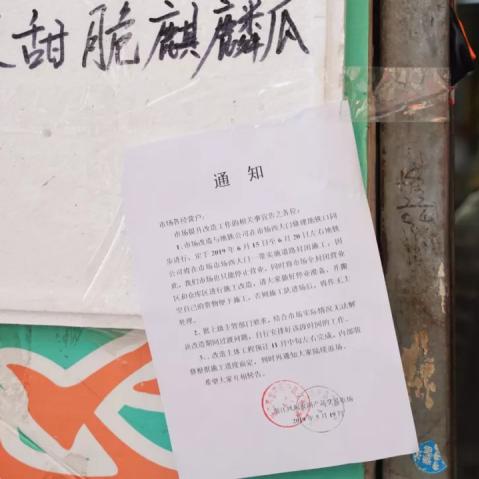 甜脆麒麟瓜
通知
市场各经营户:
市场提升改造工作的相关事宜告之各位:
1、市场改造与地铁公司在市场西大门修建地铁口同
步进行,定于2019年6月15日至6月20日左右地铁
公司将在市场市场西大门一带实施道路封闭施工,因
此,我们市场也只能停止营业。同时将市场全封闭营业
区和仓库区进行施工改造,请大家做好停业准备,并搬
空自己的货物便于施工,否则施工队进场后,将作无主
处理。
2、据上级主管部门要求,结合市场实际情况无法解
决改造期间过渡问题,自行安排好该段时间的工作。
3、改造主体工程预订11月中旬左右完成,内部装
修根据施工进度而定,到时再通知大家陆续进场。
希望大家互相转告。
市场
2019年5月19日